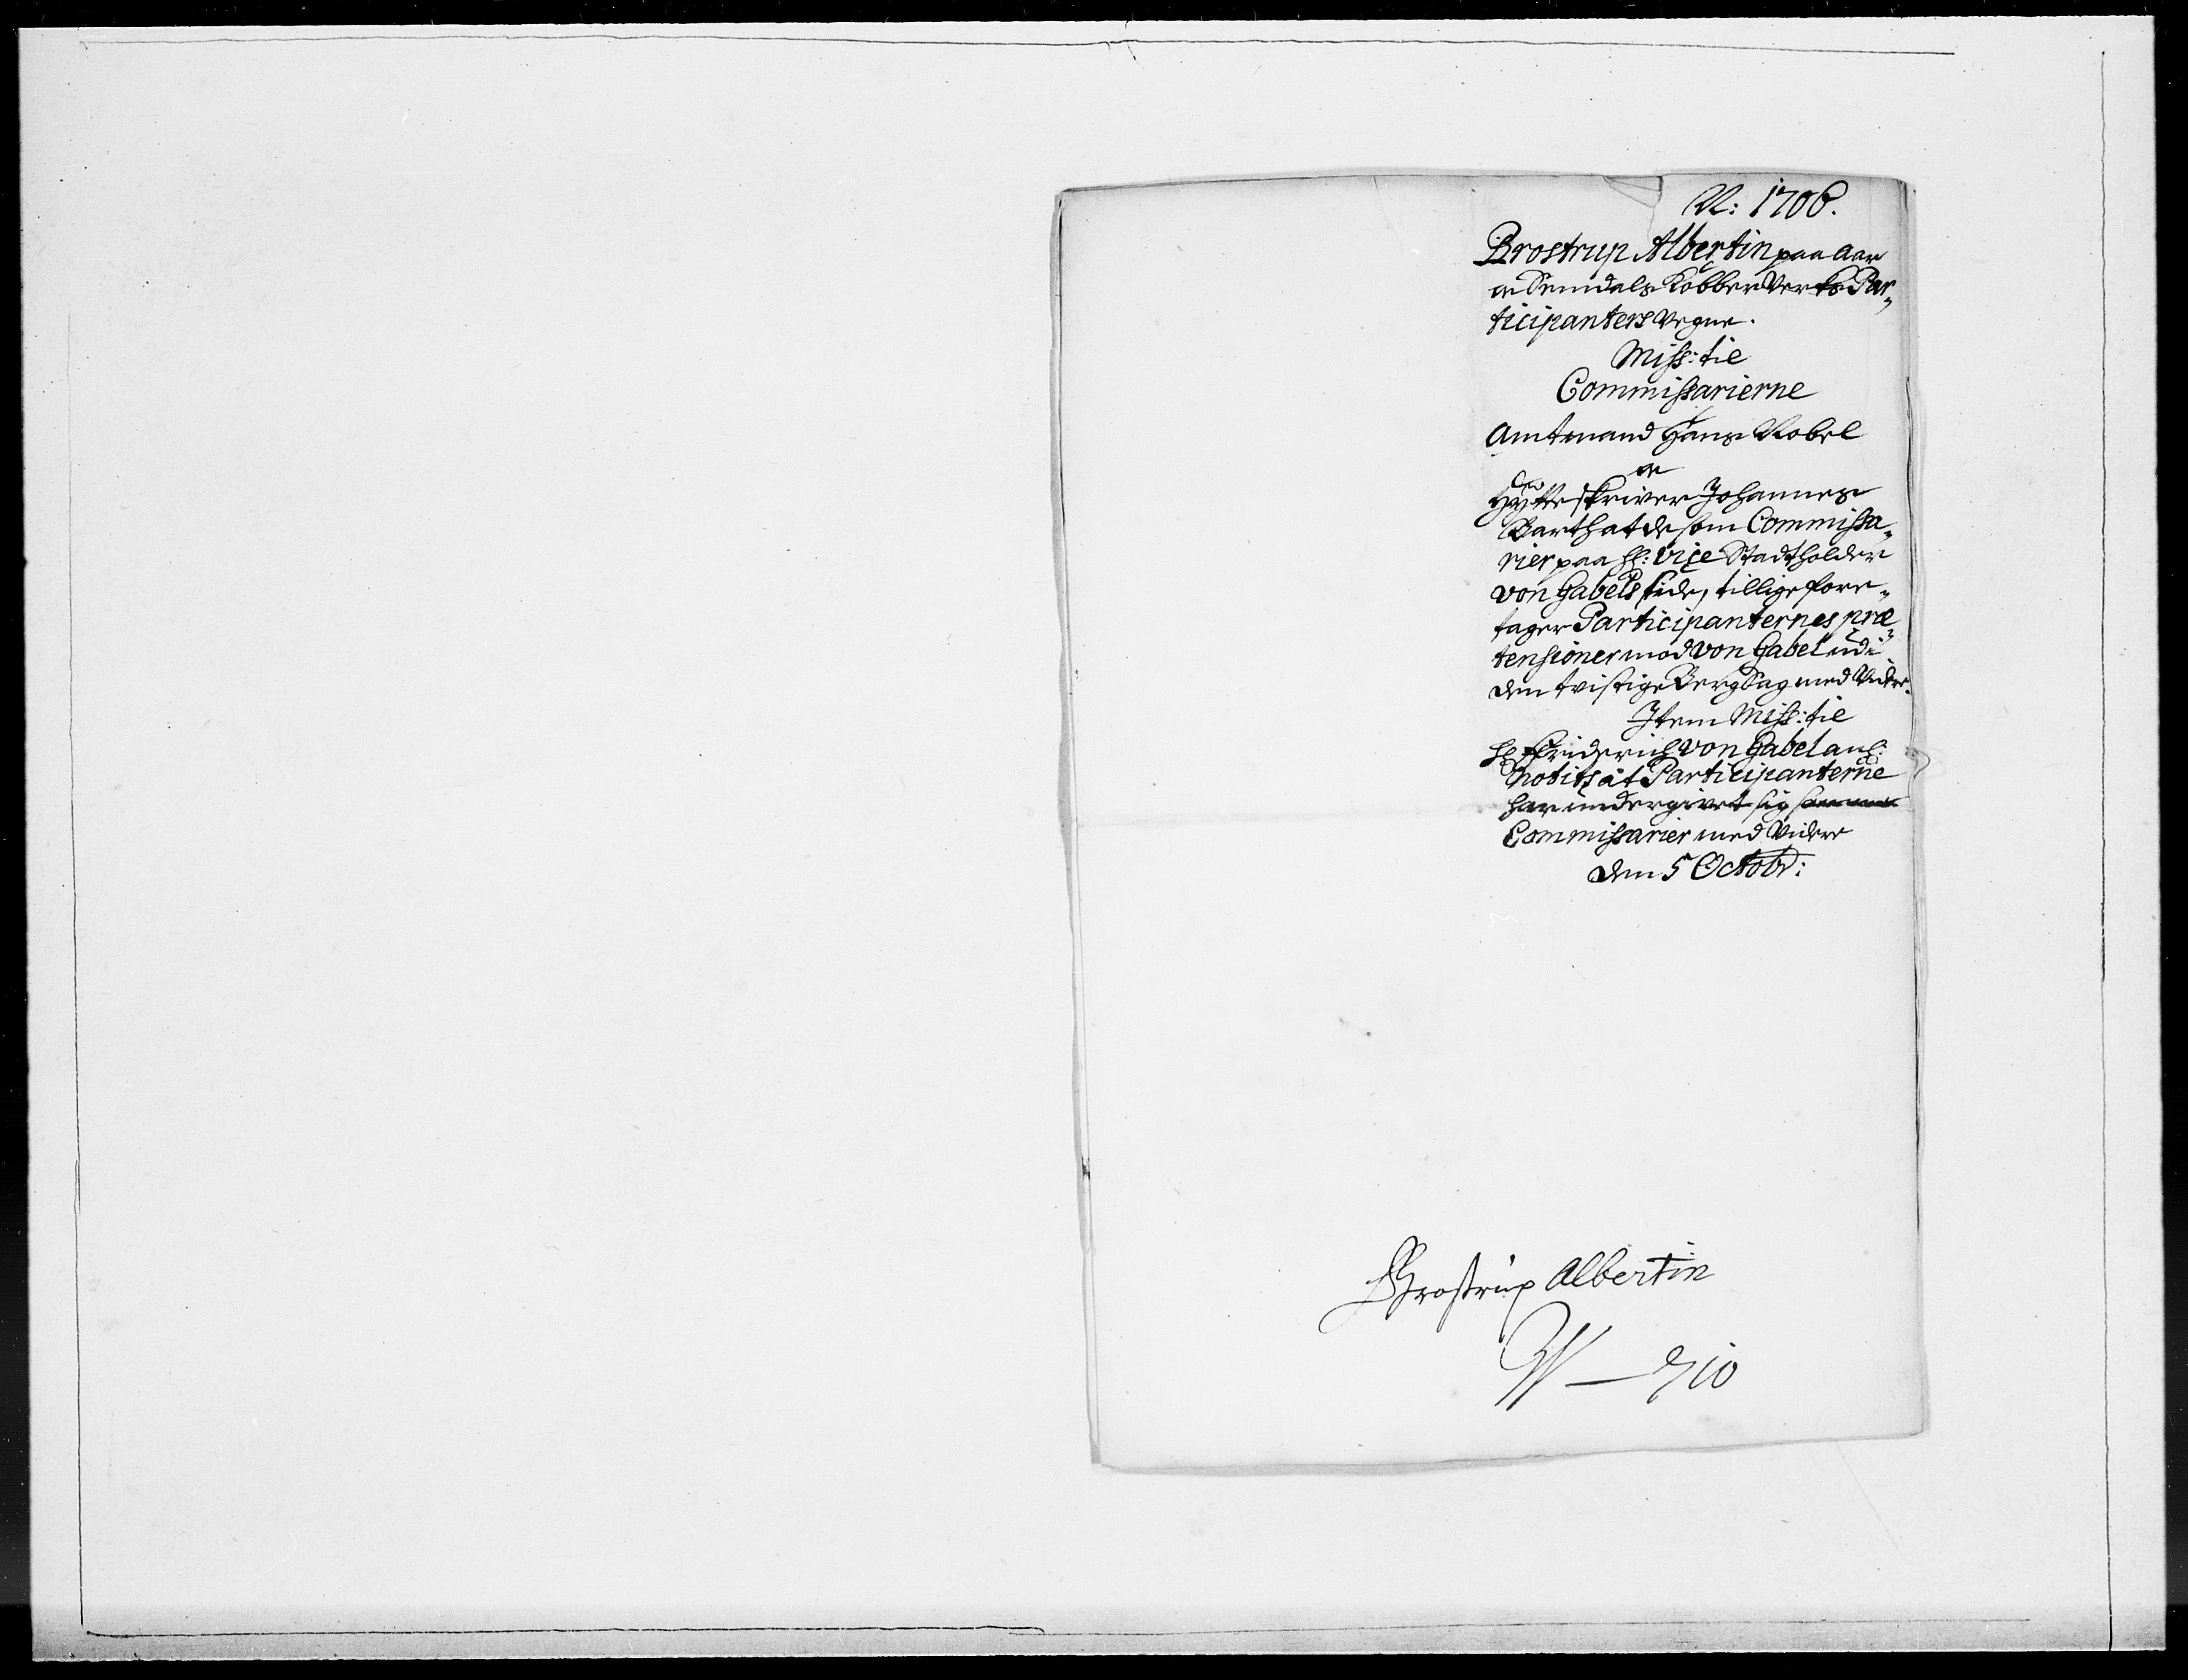 N: 1706.
Brostrup Albertin paa Aar
oc Semdals Kobber Verks Par„
ticipanters Vegne.
Miss: til
Commissarierne
Amtmand Hans Nobel
oc
Hytteskriver Johannes
Barth at de som Commissa„
rier paa Hr: Vice Stadtholder
von Gabels side, tillige fore„
tager Participanternes præ„
tensioner mod von Gabel udi
den tvistige Bergsag med Videre.
Item Miss: til
Hr Friderich von Gabel anl:
Notits at Participanterne
har undergivet sig samme
Commissarier med Videre
Den 5 Octobr:
Brostrup Albertin
W — 710